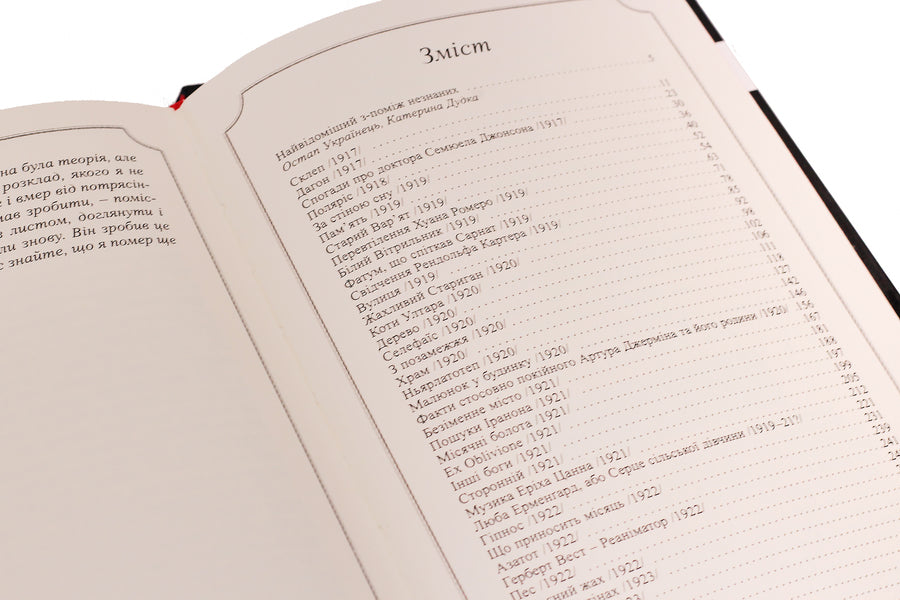 на була теорія, але
розклад, якого я не
е і вмер від потрясін-
мав зробити, – поміс-
з листом, доглянути і
ли знову. Він зробив це
с знайте, що я помер ще
Зміст
Найвідоміший з-поміж незнаних 5
Остап Українець, Катерина Дудка
Склеп /1917/ 11
Дагон /1917/ 23
Спогади про доктора Семюела Джонсона /1917/ 30
Поляріс /1918/ 36
За стіною сну /1919/ 40
Пам'ять /1919/ 52
Старий Вар'ят /1919/ 54
Перевтілення Хуана Ромеро /1919/ 63
Білий Вітрильник /1919/ 71
Фатум, що спіткав Сарнат /1919/ 78
Свідчення Рендольфа Картера /1919/ 85
Вулиця /1919/ 92
Жахливий Стариган /1920/ 98
Коти Ултара /1920/ 102
Дерево /1920/ 106
Селефаїс /1920/ 111
З позамежжя /1920/ 118
Храм /1920/ 127
Ньярлатотеп /1920/ 142
Малюнок у будинку /1920/ 146
Факти стосовно покійного Артура Джерміна та його родини /1920/ 156
Безіменне місто /1921/ 167
Пошуки Іранона /1921/ 181
Місячні болота /1921/ 188
Ex Oblivione /1921/ 197
Інші боги /1921/ 199
Сторонній /1921/ 205
Музика Еріха Цанна /1921/ 212
Люба Ерменгард, або Серце сільської дівчини /1919–21?/ 221
Гіпнос /1922/ 231
Що приносить місяць /1922/ 239
Азатот /1922/ 241
Герберт Вест – Реаніматор /1922/
Пес /1922/
ний жах /1922/
інах /1923/